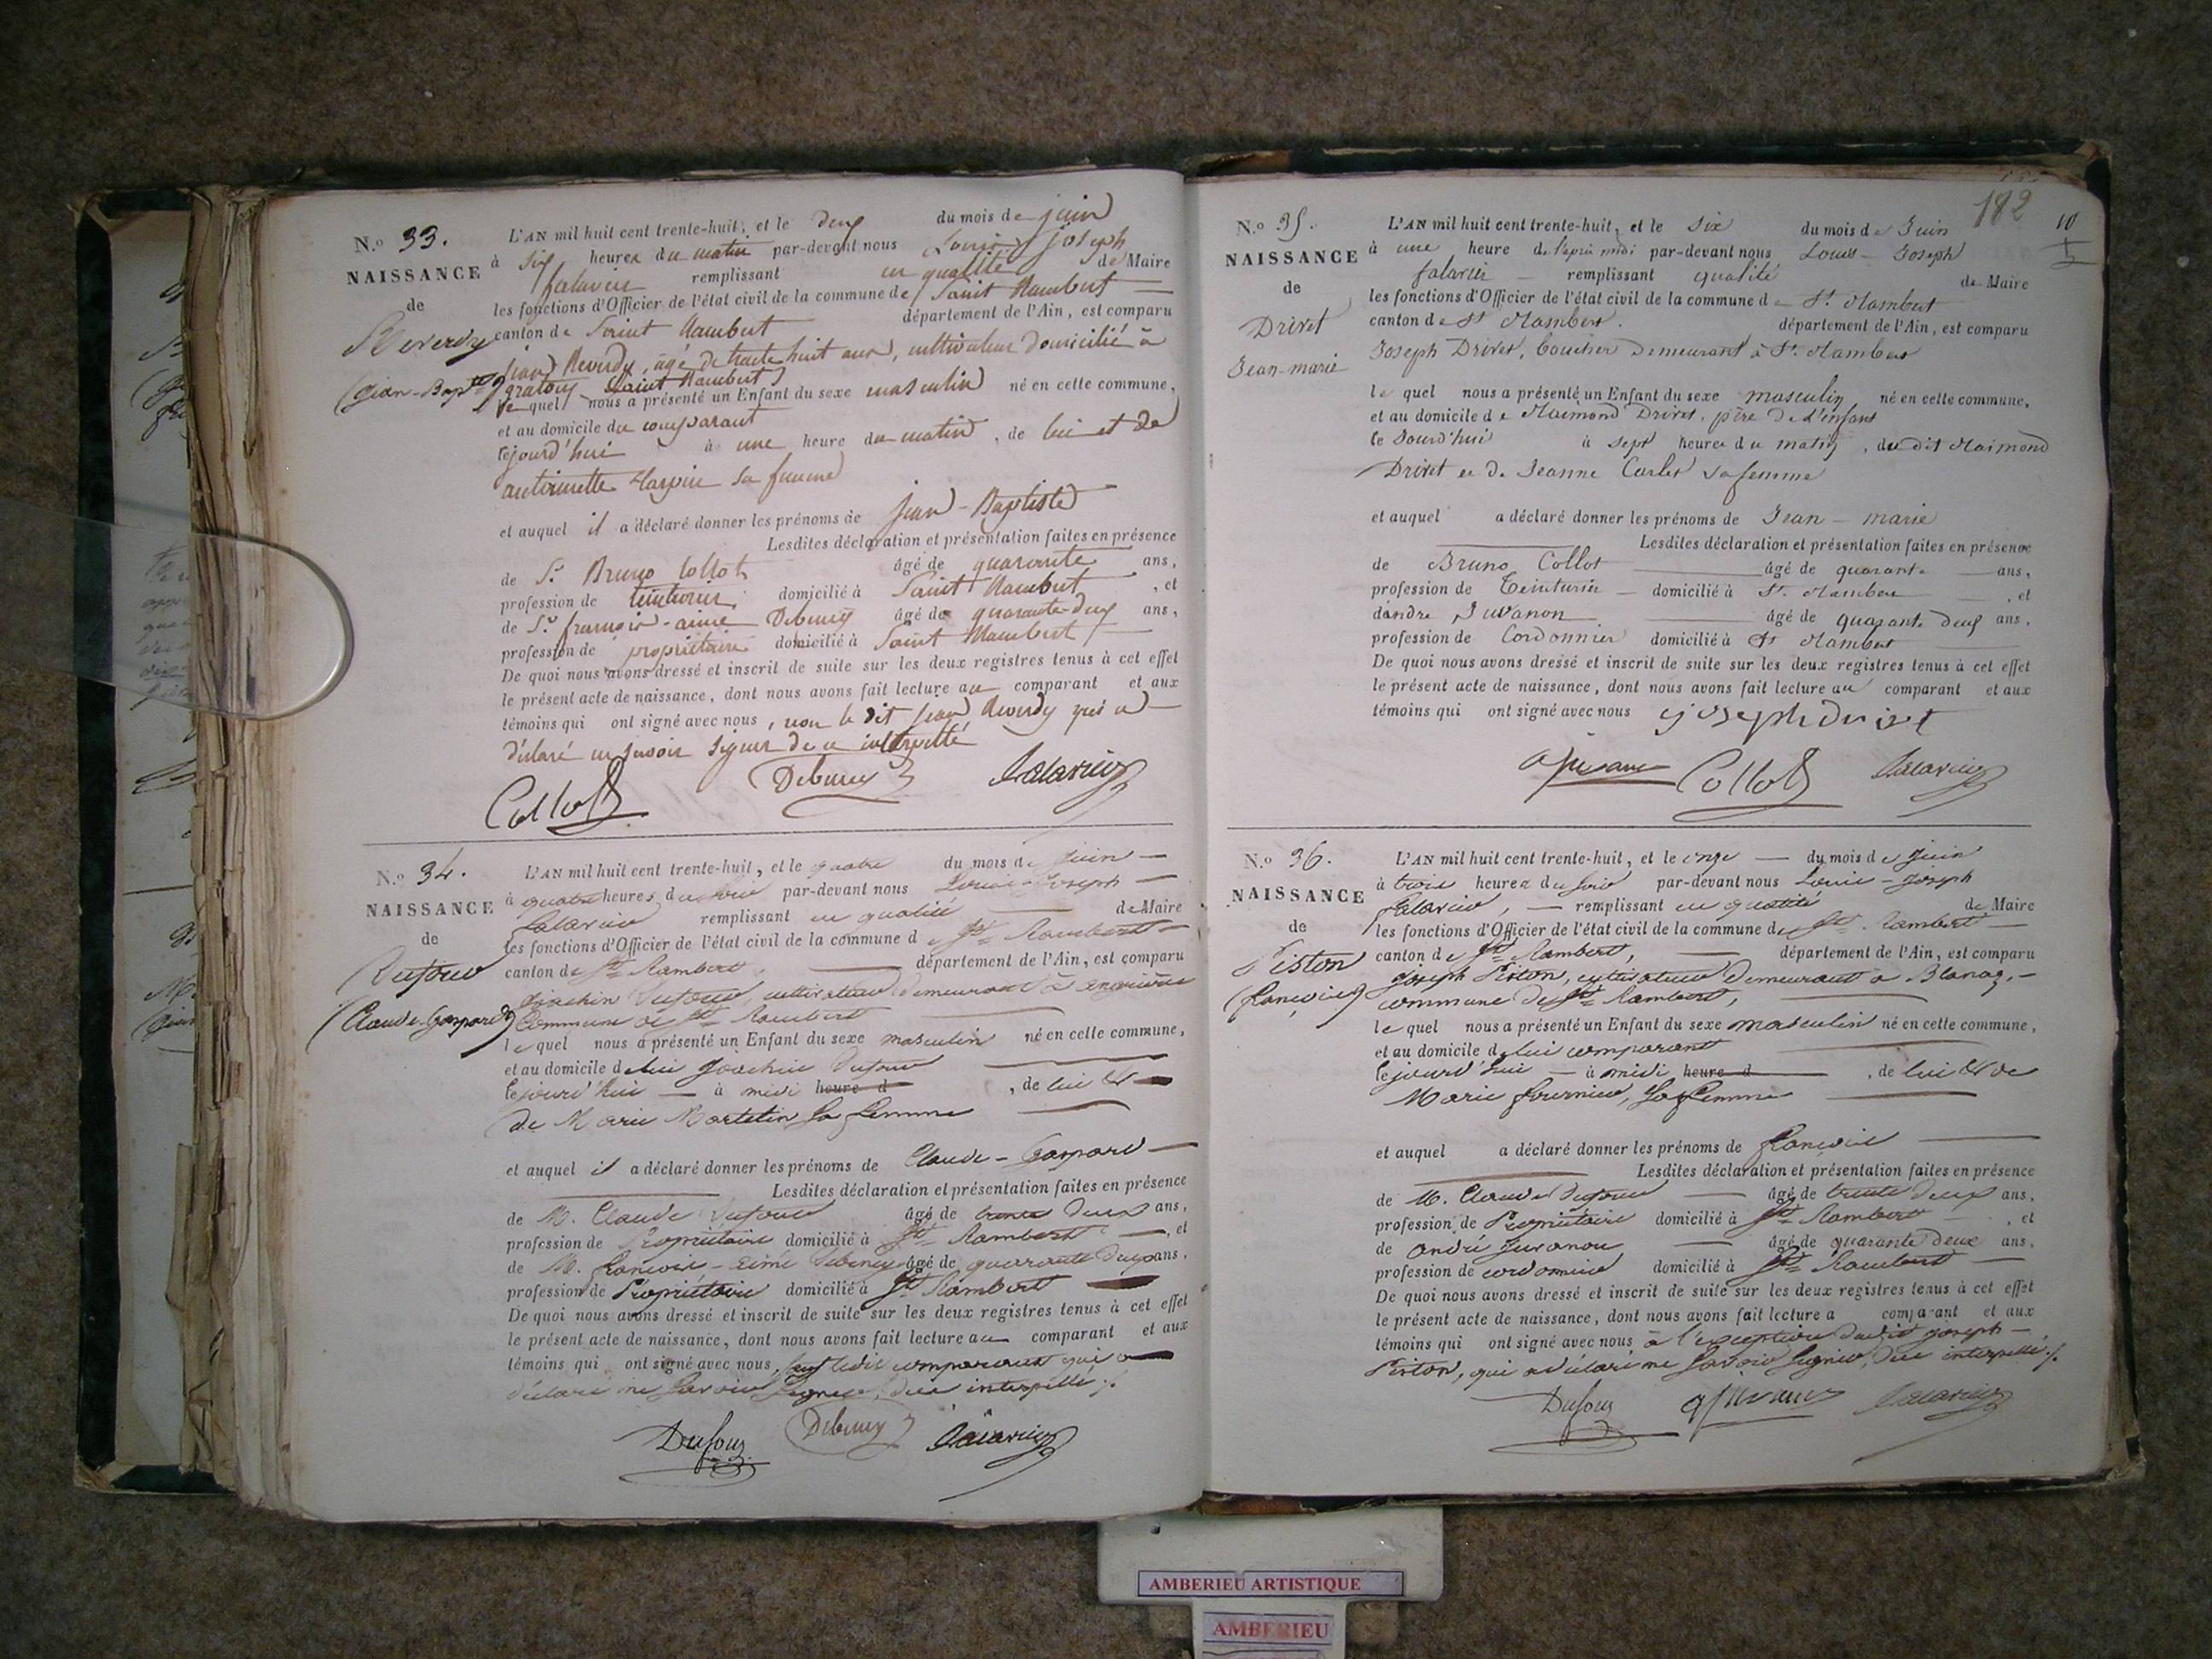 N.o 33.
NAISSANCE
de
Reverdy
(Jean-Bapte)
L'AN mil huit cent trente-huit, et le deux du mois de juin
à six heures du matin par-devant nous Louis joseph
falavier remplissant en qualité de Maire
les fonctions d'Officier de l'état civil de la commune de Saint Rambert
canton de Saint Rambert département de l'Ain, est comparu
jean Reverdy, agé de trente huit ans, cultivateur domicilié à
Saint Rambert
le quel nous a présenté un Enfant du sexe masculin né en cette commune,
et au domicile du comparant
cejourd'hui à une heure du matin, de lui et de
antoinette sa femme
et auquel il a déclaré donner les prénoms de jean-Baptiste
Lesdites déclaration et présentation faites en présence
de Sr. Bruno Collot âgé de quarante ans,
profession de teinturier, domicilié à Saint Rambert, et
de Sr. françois-aimé Debeney âgé de quarante-deux ans,
profession de propriétaire domicilié à Saint Rambert
De quoi nous avons dressé et inscrit de suite sur les deux registres tenus à cet effet
le présent acte de naissance, dont nous avons fait lecture au comparant et aux
témoins qui ont signé avec nous, non le dit jean Reverdy qui a
déclaré ne savoir signer de ce interpellé
Collot Debeney Falavier
N.o 34.
NAISSANCE
de
Dufour
(Claude-Gaspard)
L'AN mil huit cent trente-huit, et le quatre du mois de juin
à quatre heures du soir par-devant nous Louis-Joseph
falavier remplissant en qualité de Maire
les fonctions d'Officier de l'état civil de la commune de St. Rambert
canton de St. Rambert, département de l'Ain, est comparu
Joachin Dufour, cultivateur demeurant à
Commune de St. Rambert
le quel nous a présenté un Enfant du sexe masculin né en cette commune,
et au domicile de lui Joachin Dufour
cejourd'hui à midi heure d, de lui &
de Marie Martelin sa femme
et auquel il a déclaré donner les prénoms de Claude-Gaspard
Lesdites déclaration et présentation faites en présence
de M. Claude Dufour âgé de trente deux ans,
profession de Propriétaire domicilié à St. Rambert, et
de M. françois-Aimé Debeney âgé de quarante deux ans,
profession de Propriétaire domicilié à St. Rambert
De quoi nous avons dressé et inscrit de suite sur les deux registres tenus à cet effet
le présent acte de naissance, dont nous avons fait lecture au comparant et aux
témoins qui ont signé avec nous, sauf ledit comparant qui a
déclaré ne savoir signer, de ce interpellé ./.
Dufour Debeney Falavier
182
10
N.o 35.
NAISSANCE
de
Drivet
Jean-marie
L'AN mil huit cent trente-huit, et le six du mois de Juin
à une heure de l'après midi par-devant nous Louis-Joseph
falavier remplissant qualité de Maire
les fonctions d'Officier de l'état civil de la commune de St. Rambert
canton de St Rambert. département de l'Ain, est comparu
Joseph Drivet, boucher demeurant à St. Rambert
le quel nous a présenté un Enfant du sexe masculin né en cette commune,
et au domicile de Raimond Drivet, père de l'enfant
ce Jourd'hui à sept heures du matin, du dit Raimond
Drivet et de Jeanne Carlet sa femme
et auquel a déclaré donner les prénoms de Jean-marie
Lesdites déclaration et présentation faites en présence
de Bruno Collot âgé de quarante ans,
profession de Teinturier domicilié à St. Rambert, et
d'andre Juvanon âgé de quarante deux ans,
profession de Cordonnier domicilié à St Rambert
De quoi nous avons dressé et inscrit de suite sur les deux registres tenus à cet effet
le présent acte de naissance, dont nous avons fait lecture au comparant et aux
témoins qui ont signé avec nous joseph drivet
Collot Falavier
N.o 36.
NAISSANCE
de
Piston
(françois)
L'AN mil huit cent trente-huit, et le onze du mois de juin
à trois heures du soir par-devant nous Louis-Joseph
falavier, remplissant en qualité de Maire
les fonctions d'Officier de l'état civil de la commune de St. Rambert
canton de St. Rambert, département de l'Ain, est comparu
Joseph Piston, cultivateur demeurant à Blanaz,
commune de St. Rambert,
le quel nous a présenté un Enfant du sexe masculin né en cette commune,
et au domicile de lui comparant
cejourd'hui à midi heure d, de lui & de
Marie fournier, sa femme
et auquel a déclaré donner les prénoms de françois
Lesdites déclaration et présentation faites en présence
de M. Claude Dufour âgé de trente deux ans,
profession de Propriétaire domicilié à St. Rambert, et
de andré juvanon âgé de quarante deux ans,
profession de cordonnier domicilié à St. Rambert
De quoi nous avons dressé et inscrit de suite sur les deux registres tenus à cet effet
le présent acte de naissance, dont nous avons fait lecture a comparant et aux
témoins qui ont signé avec nous à l'exception dudit joseph
Piston, qui a déclaré ne savoir signer, de ce interpellé ./.
Dufour Falavier
AMBERIEU ARTISTIQUE
AMBERIEU